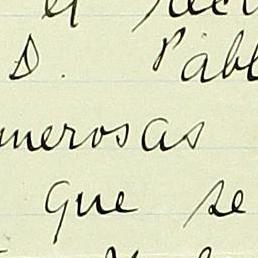 el
D. Pabl
merosas
que se